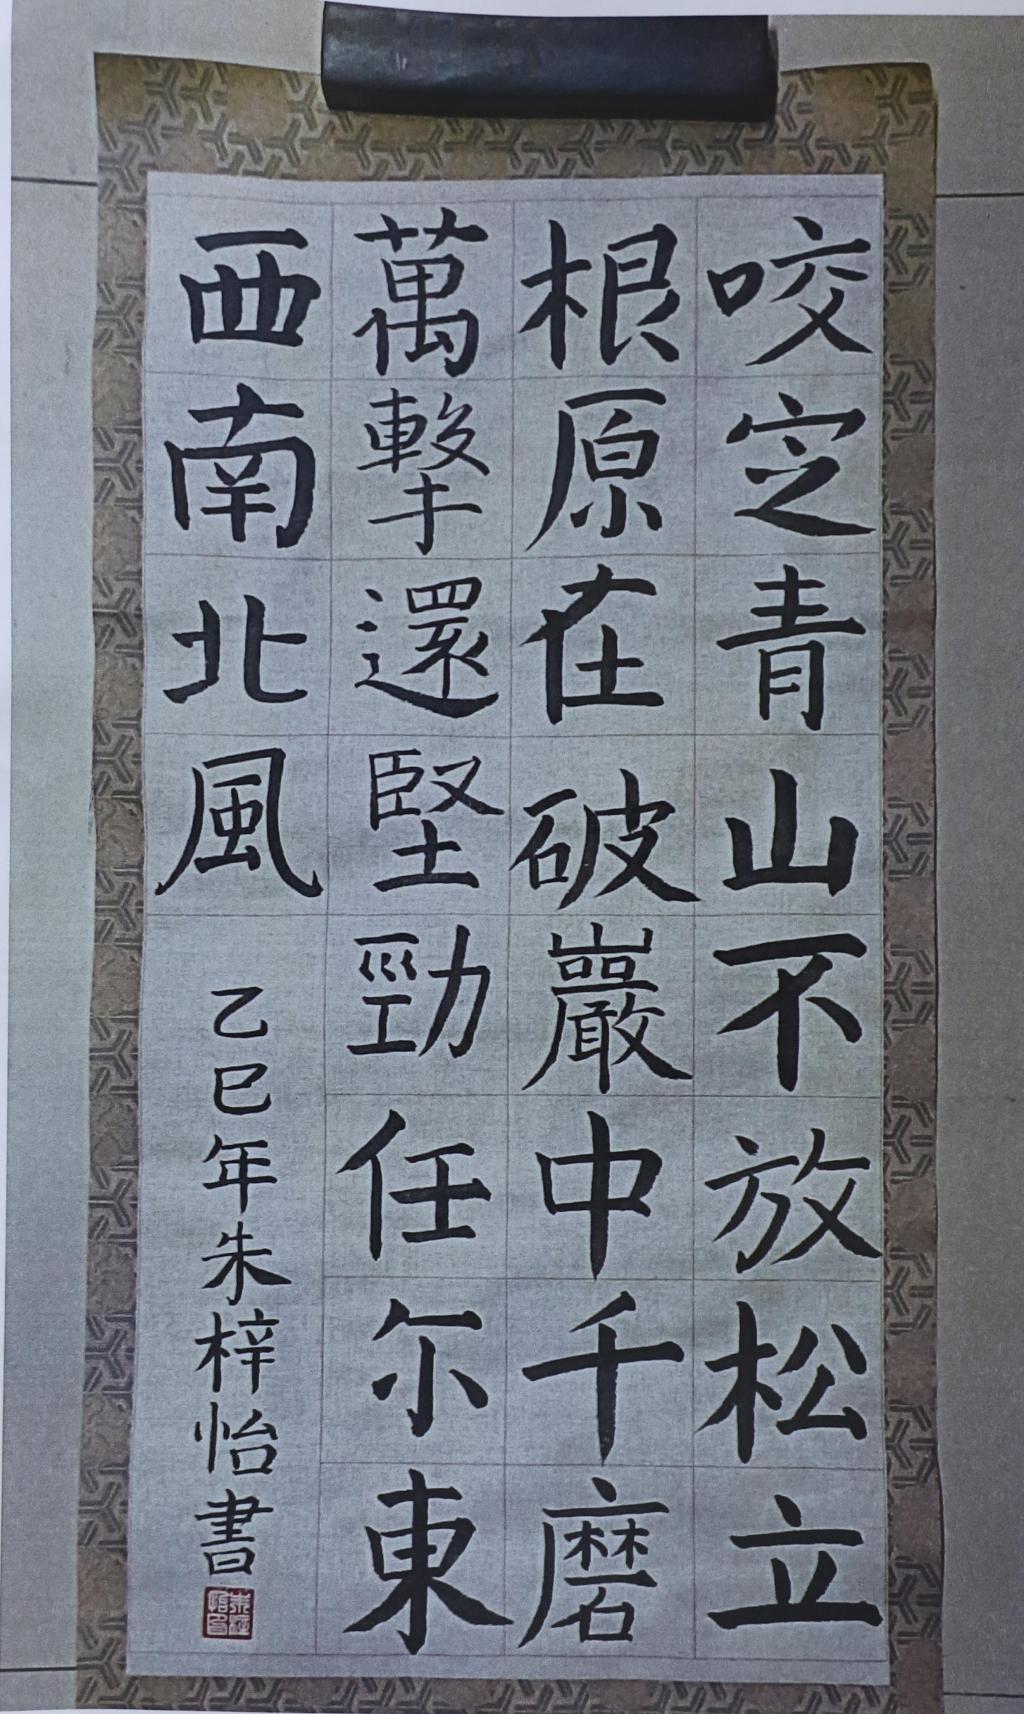 咬定青山不放松立
根原在破巖中千磨
萬擊還堅勁任尓東
西南北風
乙巳年朱梓怡書